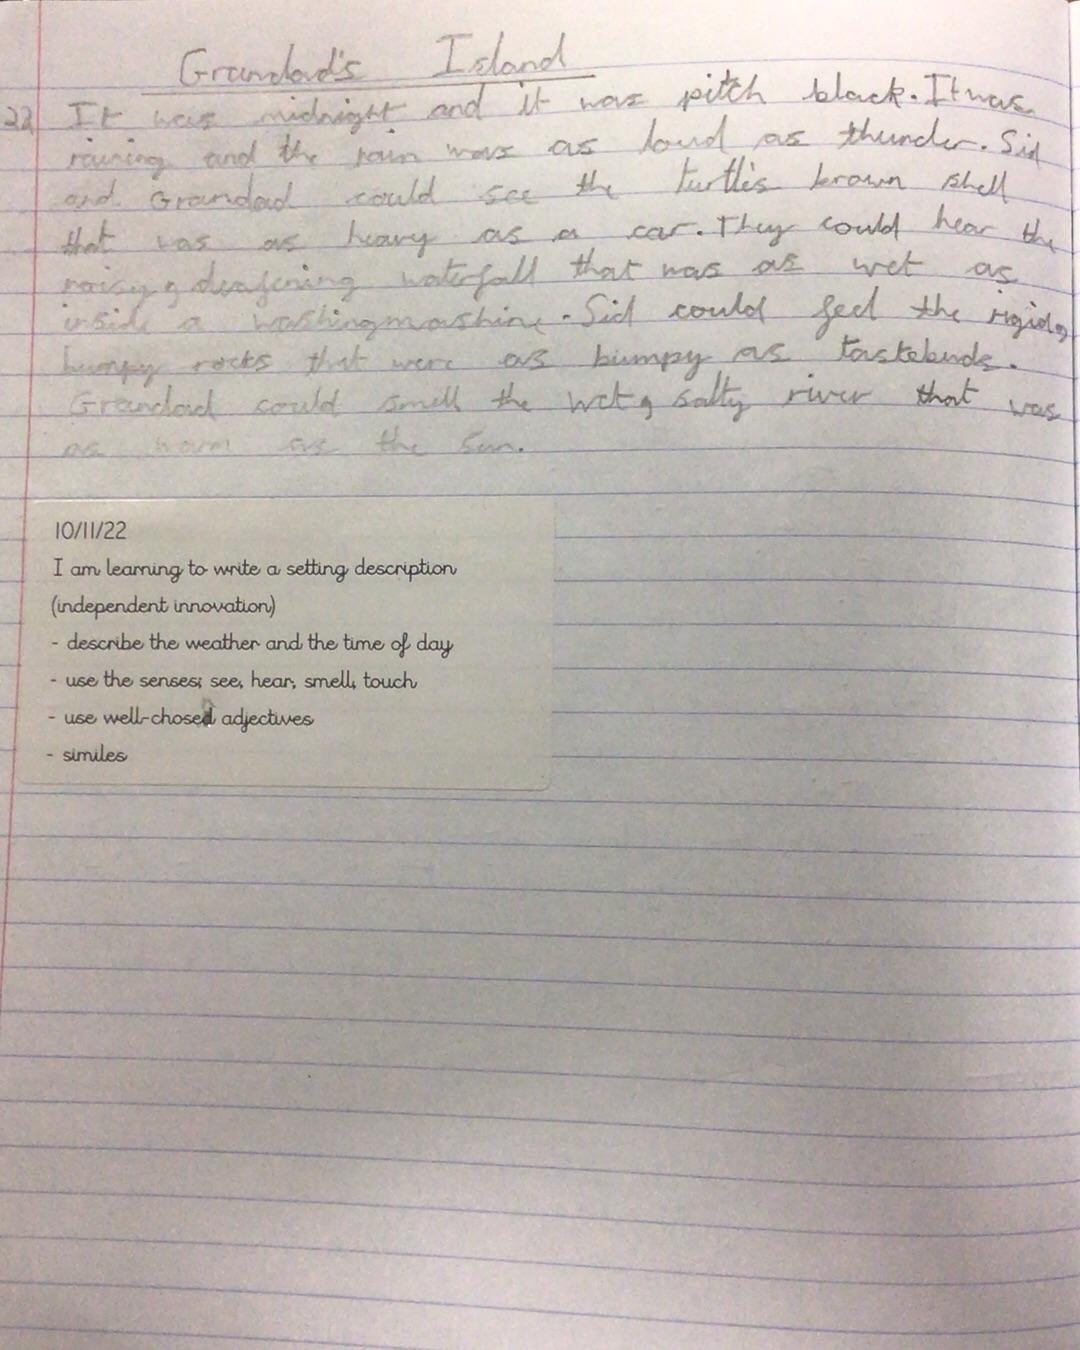 Grandad's Island
22 It was midnight and it was pitch black. It was
raining and the rain was as loud as thunder. Sid
and Grandad could see the turtle's brown shell
that was as heavy as a car. They could hear the
noisy, deafening waterfall that was as wet as
inside a washingmashine. Sid could feel the rigid,
bumpy rocks that were as bumpy as tastebuds.
Grandad could smell the wet, salty river that was
as warm as the sun.
10/11/22
I am learning to write a setting description
(independent innovation)
- describe the weather and the time of day
- use the senses; see, hear, smell, touch
- use well-chosen adjectives
- similes